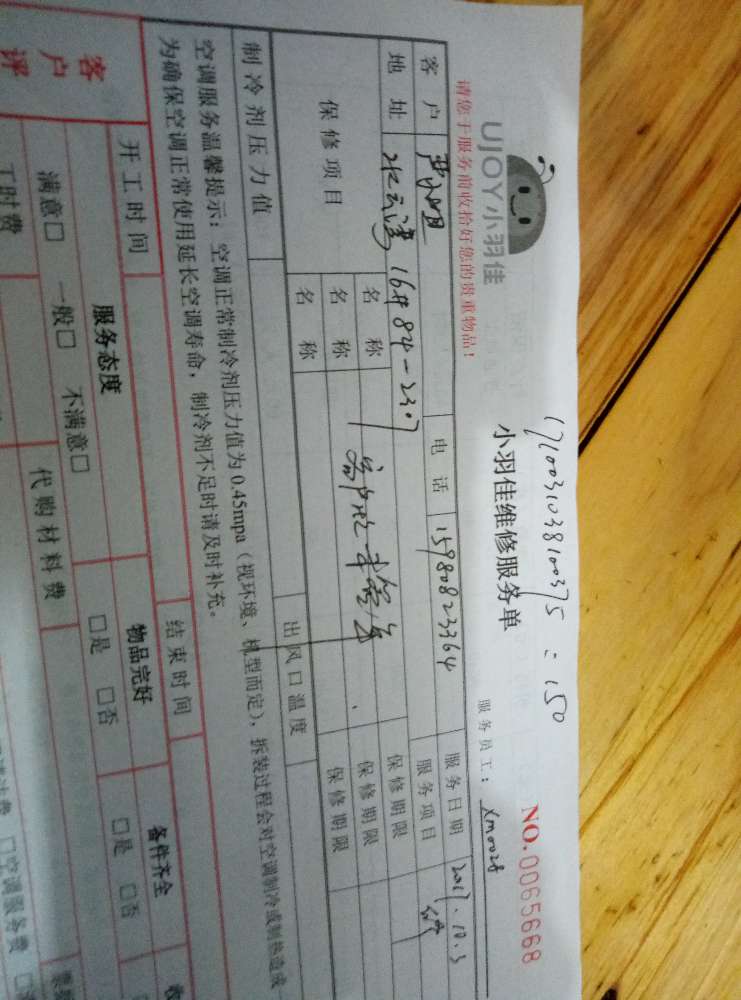 1710031038100375 : 150
UJOY小羽佳
小羽佳维修服务单
NO.0065668
请您于服务前收拾好您的贵重物品!
服务员工: xm0028
客户 电话 15980823364 服务日期 2017.10.3
地址 16# 84-2307 服务项目
保修项目 名称 保修期限
名称 保修期限
名称 保修期限
制冷剂压力值 出风口温度
空调服务温馨提示: 空调正常制冷剂压力值为0.45mpa(视环境、机型而定),拆装过程会对空调制冷或制热造成一
为确保空调正常使用延长空调寿命,制冷剂不足时请及时补充。
开工时间 结束时间
客户评 服务态度 物品完好 备件齐全
满意□ 一般□ 不满意□ □是 □否 □是 □否
工时费 代购材料费
□空调服务费